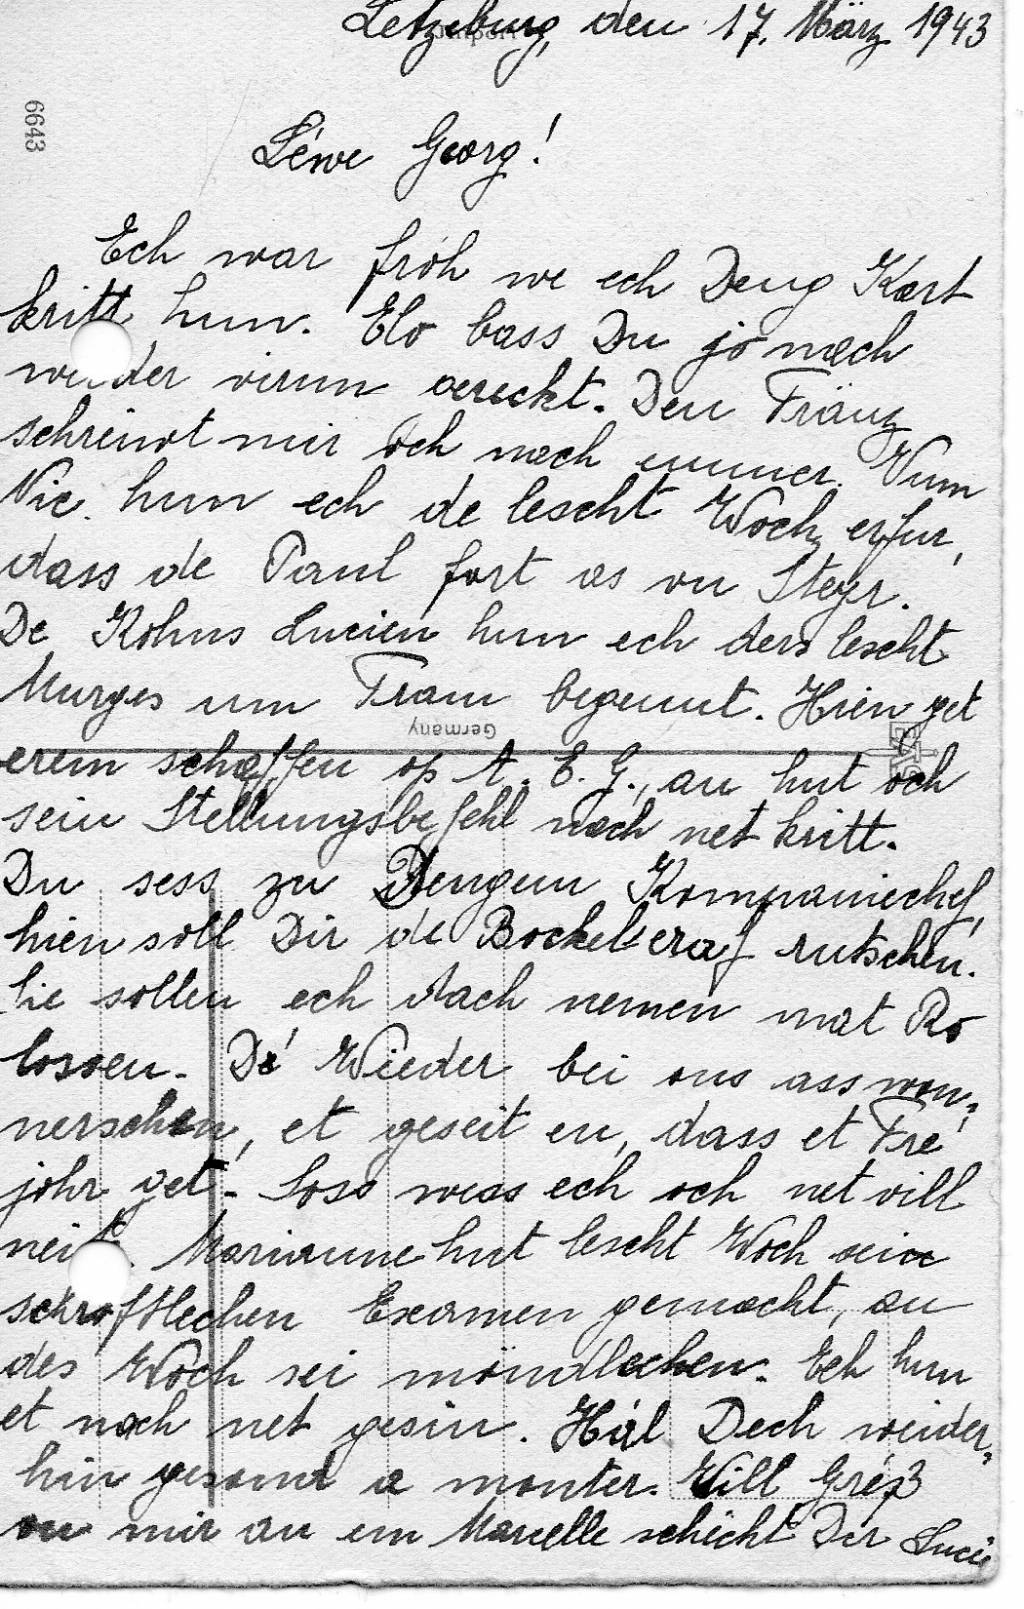 Letzeburg, den 17. März 1943
6643
Léwe Georg!
Ech war fróh we ech Deng Kart
kritt hun. Elo bass Du jo nach
weider virun geréckt. Den Fränz
schreiwt mir och nach ummer. Vum
Nic. hun ech de lescht Woch erfur,
dass de Paul fort as vu Steyr.
De Kohns Lucien hun ech ders lescht
Murges um Tram begennt. Hien get
erem schaffen op A. E. G., an hut och
sein Stellungsbefehl nach net kritt.
Du sess zu Dengem Kompaniechef,
hien soll Dir de Bockel eraf rutschen.
Sie sollen ech dach nemen mat Ro
lossen. Dé Wieder bei ons ass won-
nerschen, et geseit en, dass et Fré
johr get. Soss wees ech och net vill
neit. Marianne hut lescht Woch sein
schröftlechen Examen gemacht, an
des Woch sei möndlechen. Ech hun
et nach net gesin. Hál Dech weider-
hin gesond a monter. Vill Gréß
vu mir an em Marcelle schéckt Der Lucie
Germany